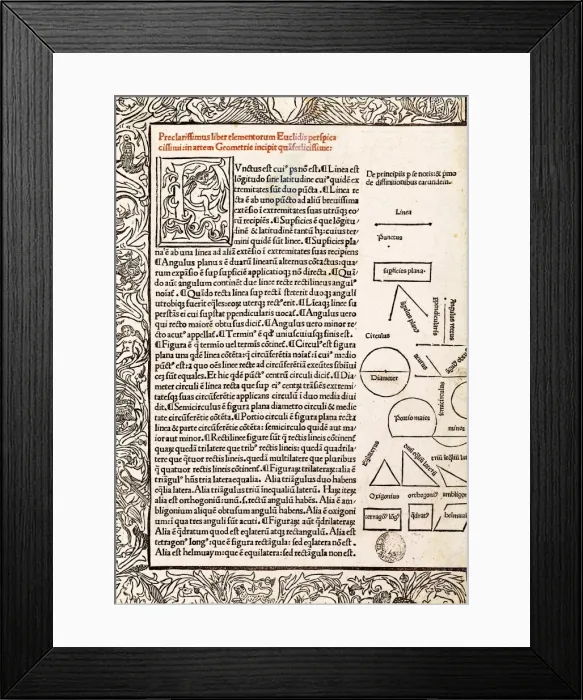 Preclarissimus liber elementorum Euclidis perspica
cissimi: in artem Geometrie incipit quãfœlicissime:
PVnctus est cuiꝰ ps nõ est. ¶ Linea est
lõgitudo sine latitudine cuiꝰ quidẽ ex
tremitates sũt duo pũcta. ¶ Linea re
cta ẽ ab uno pũcto ad aliũ breuissima
extẽsio ĩ extremitates suas utrũqꝫ eo
rũ recipiẽs. ¶ Supficies ẽ que lõgitu
dinẽ & latitudinẽ tantũ hꝫ: cuius ter
mini quidẽ sũt linee. ¶ Supficies pla
na ẽ ab una linea ad aliã extẽsio ĩ extremitates suas recipiens
¶ Angulus planus ẽ duarũ linearũ alternus cõtactus: qua
rum expãsio ẽ sup supficiẽ applicatioqꝫ nõ directa. ¶ Quã
do aut angulum continẽt due linee recte rectilineus angulꝰ
noiat. ¶ Qũ recta linea sup rectã steterit duoqꝫ anguli
utrobiqꝫ fuerit eq̃les: eoꝝ uterqꝫ rectꝰ erit. ¶ Lineaqꝫ linee su
perstãs ei cui supstat ppendicularis uocat. ¶ Angulus uero
qui recto maior ẽ obtusus dicit. ¶ Angulus uero minor re
cto acutꝰ appellat. ¶ Terminꝰ ẽ qd̃ uniuscuiusqꝫ finis est.
¶ Figura ẽ q̃ termino uel termis cõtinet. ¶ Circulꝰ est figura
plana una qdẽ linea cõtẽta: q̃ circũferẽtia noiat: ĩ cuiꝰ medio
pũctꝰ est: a quo oẽs linee recte ad circũferẽtiã exeũtes sibiĩui
cẽ sũt equales. Et hic qdẽ pũctꝰ cẽtrũ circuli dicit. ¶ Dia
meter circuli ẽ linea recta que sup eiꝰ centꝝ trãsiẽs extremi
tatesqꝫ suas circũferẽtie applicans circulũ ĩ duo media diui
dit. ¶ Semicirculus ẽ figura plana diametro circuli & medie
tate circũferẽtie cõtẽta. ¶ Portio circuli ẽ figura plana recta
linea & parte circũferẽtie cõtẽta: semicirculo quidẽ aut ma
ior aut minor. ¶ Rectilinee figure sũt q̃ rectis lineis cõtinent
quarꝝ quedã trilatere que tribꝰ rectis lineis: quedã quadrila
tere que q̃tuor rectis lineis. quedã multilatere que pluribus
q̃ quatuor rectis lineis cõtinent. ¶ Figuraꝝ trilateraꝝ: alia ẽ
triãgulꝰ hñs tria latera equalia. Alia triãgulus duo habens
eq̃lia latera. Alia triãgulus triũ inequaliũ laterũ. Haꝝ iteꝝ
alia est orthogoniũ: unũ. s. rectũ angulũ habẽs. Alia ẽ am
bligonium aliquẽ obtusum angulũ habens. Alia ẽ oxigoni
um: ĩ qua tres anguli sũt acuti. ¶ Figuraꝝ aũt q̃drilateraꝝ
Alia ẽ q̃dratum quod est eq̃laterũ atqꝫ rectangulũ. Alia est
tetragonꝰ longꝰ: que ẽ figura rectãgula: sed eq̃latera nõ est.
Alia est helmuaym: que ẽ equilatera: sed rectãgula non est.
De principiis p se notis: & pmo
de diffinitionibus earundem.
Linea
Punctus
supficies plana.
Circulus
Diameter
Portio maior
Oxigonius orthogonꝰ ambligon
tetragonꝰ lõgꝰ q̃dratꝰ helmuai